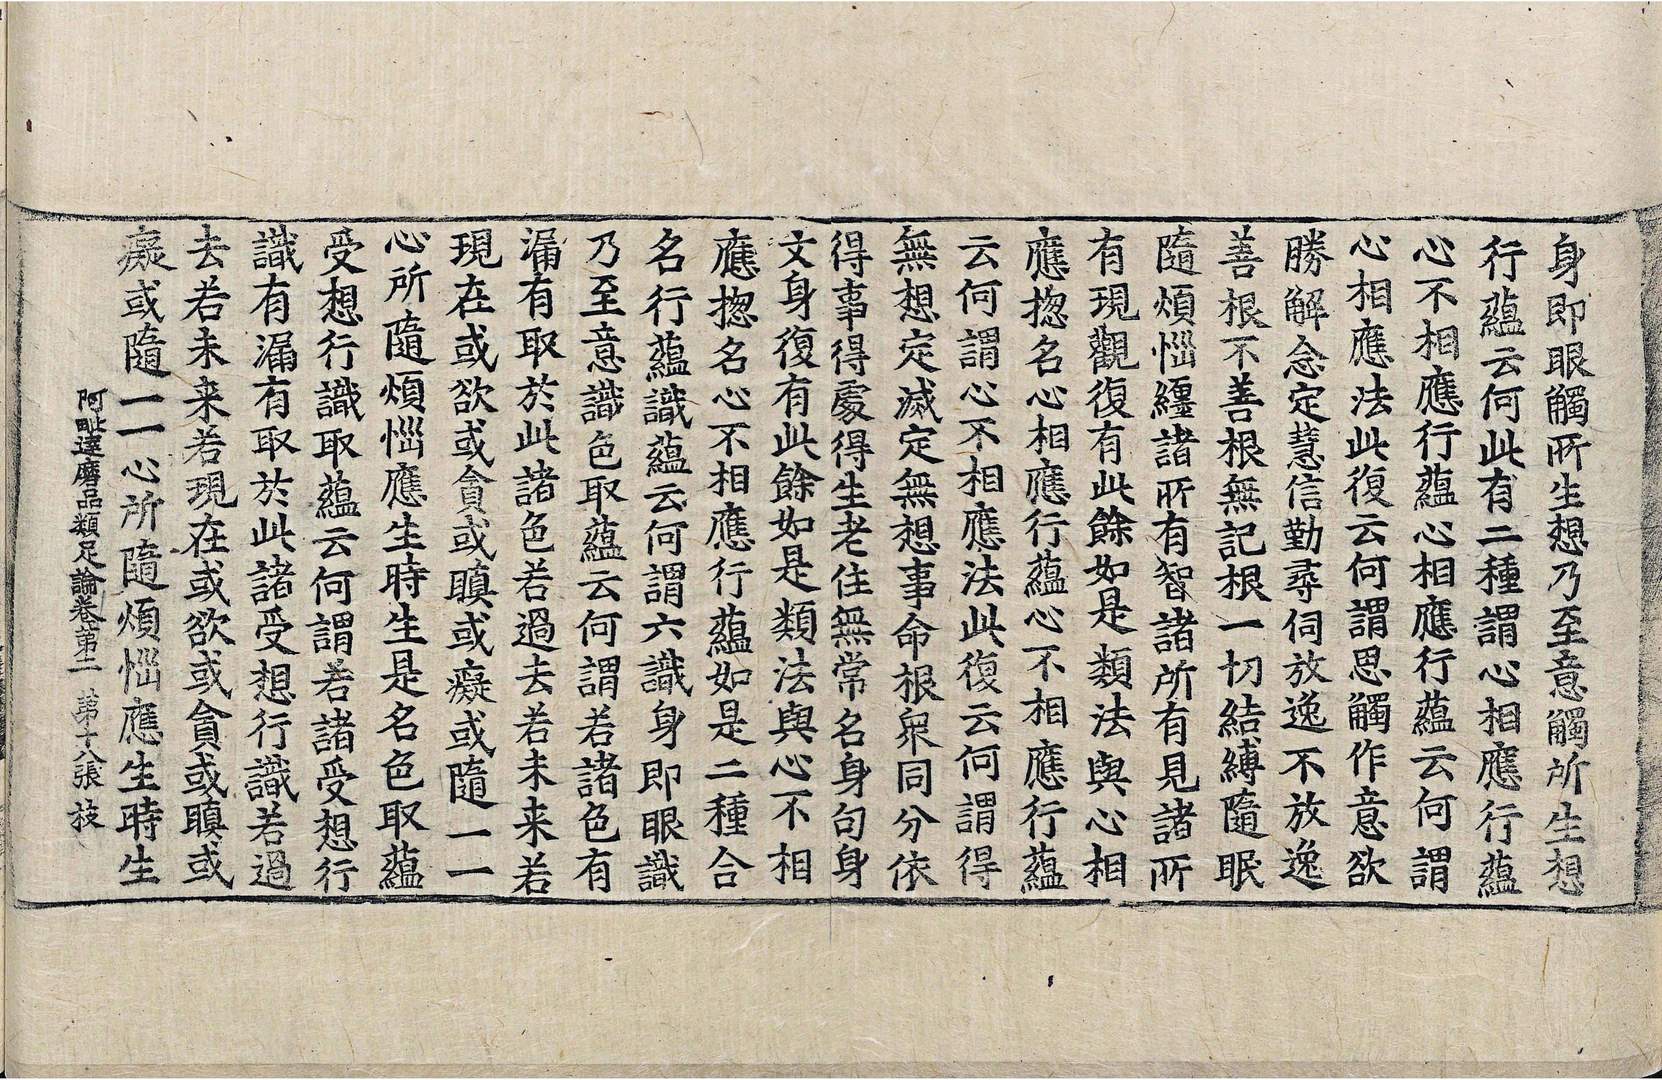 身即眼觸所生想乃至意觸所生想
行蘊云何此有二種謂心相應行蘊
心不相應行蘊心相應行蘊云何謂
心相應法此復云何謂思觸作意欲
勝解念定慧信勤尋伺放逸不放逸
善根不善根無記根一切結縛隨眠
隨煩惱纏諸所有智諸所有見諸所
有現觀復有此餘如是類法與心相
應揔名心相應行蘊心不相應行蘊
云何謂心不相應法此復云何謂得
無想定滅定無想事命根衆同分依
得事得處得生老住無常名身句身
文身復有此餘如是類法與心不相
應揔名心不相應行蘊如是二種合
名行蘊識蘊云何謂六識身即眼識
乃至意識色取蘊云何謂若諸色有
漏有取於此諸色若過去若未来若
現在或欲或貪或瞋或癡或隨一一
心所隨煩惱應生時生是名色取蘊
受想行識取蘊云何謂若諸受想行
識有漏有取於此諸受想行識若過
去若未来若現在或欲或貪或瞋或
癡或隨一一心所隨煩惱應生時生
阿毗達磨品類足論卷第二 第十八張 技